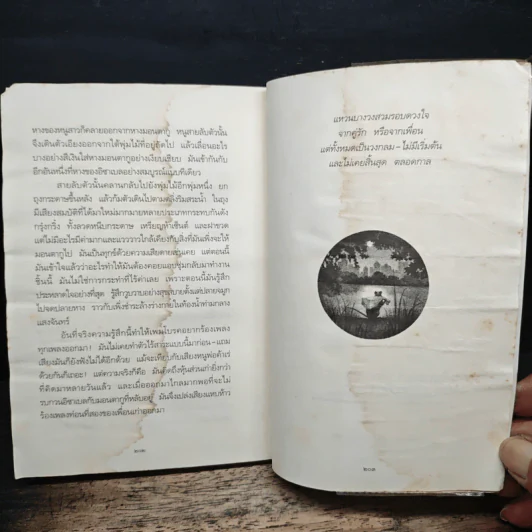 หางของหนูสาวก็คลายออกจากหางมอนตากู หนูสายลับตัวนั้น
จึงเดินตัวเอียงออกจากใต้พุ่มไม้ที่อยู่ถัดไป แล้วเลื่อนอะไร
บางอย่างสีเงินใส่หางมอนตากูอย่างเงียบเชียบ มันเข้ากันกับ
อีกอันหนึ่งที่หางของอิซาเบลอย่างสมบูรณ์แบบทีเดียว
สายลับตัวนั้นคลานกลับไปยังพุ่มไม้อีกพุ่มหนึ่ง ยก
ถุงกระดาษขึ้นหลัง แล้วก้มตัวเดินไปตามตลิ่งริมสระน้ำ ในถุง
มีเสียงสมบัติที่ได้มาใหม่มากมายหลายประเภทกระทบกันดัง
กรุ๋งกริ๋ง ทั้งลวดหนีบกระดาษ เหรียญห้าเซ็นต์ และฝาขวด
แต่ไม่มีอะไรมีค่ามากและแวววาวใกล้เคียงกับสิ่งที่มันเพิ่งจะให้
มอนตากูไป มันเป็นทุกข์ด้วยความเสียดาย แต่ตอนนี้
มันเข้าใจแล้วว่าอะไรทำให้มันต้องคอยแอบซุ่มกลับมาทำงาน
ชิ้นนี้ มันไม่ใช่การกระทำที่ไร้ค่าเลย เพราะตอนนี้มันรู้สึก
ประหลาดใจอย่างที่สุด รู้สึกวูบวาบอย่างสุขสบายตั้งแต่ปลายจมูก
ไปจดปลายหาง ราวกับเพิ่งชำระล้างร่างกายในห้องน้ำท่ามกลาง
แสงจันทร์
อันที่จริงความรู้สึกนี้ทำให้เพมโบรคอยากร้องเพลง
ทุกเพลงออกมา! มันไม่เคยทำตัวไร้สาระแบบนี้มาก่อน–แถม
เสียงมันก็ยังฟังไม่ได้อีกด้วย แม้จะเทียบกับเสียงหนูพ่อค้าเร่
ด้วยกันก็เถอะ! แต่ความจริงก็คือ มันคิดถึงหุ้นส่วนเก่ายิ่งกว่า
ที่คิดมาหลายวันแล้ว และเมื่อออกมาไกลมากพอที่จะไม่
รบกวนอิซาเบลกับมอนตากูที่หลับอยู่ มันจึงเปล่งเสียงแหบห้าว
ร้องเพลงท่อนที่สองของเพื่อนเก่าออกมา
แหวนบางวงสวมรอบดวงใจ
จากคู่รัก หรือจากเพื่อน
แต่ทั้งหมดเป็นวงกลม – ไม่มีเริ่มต้น
และไม่เคยสิ้นสุด ตลอดกาล